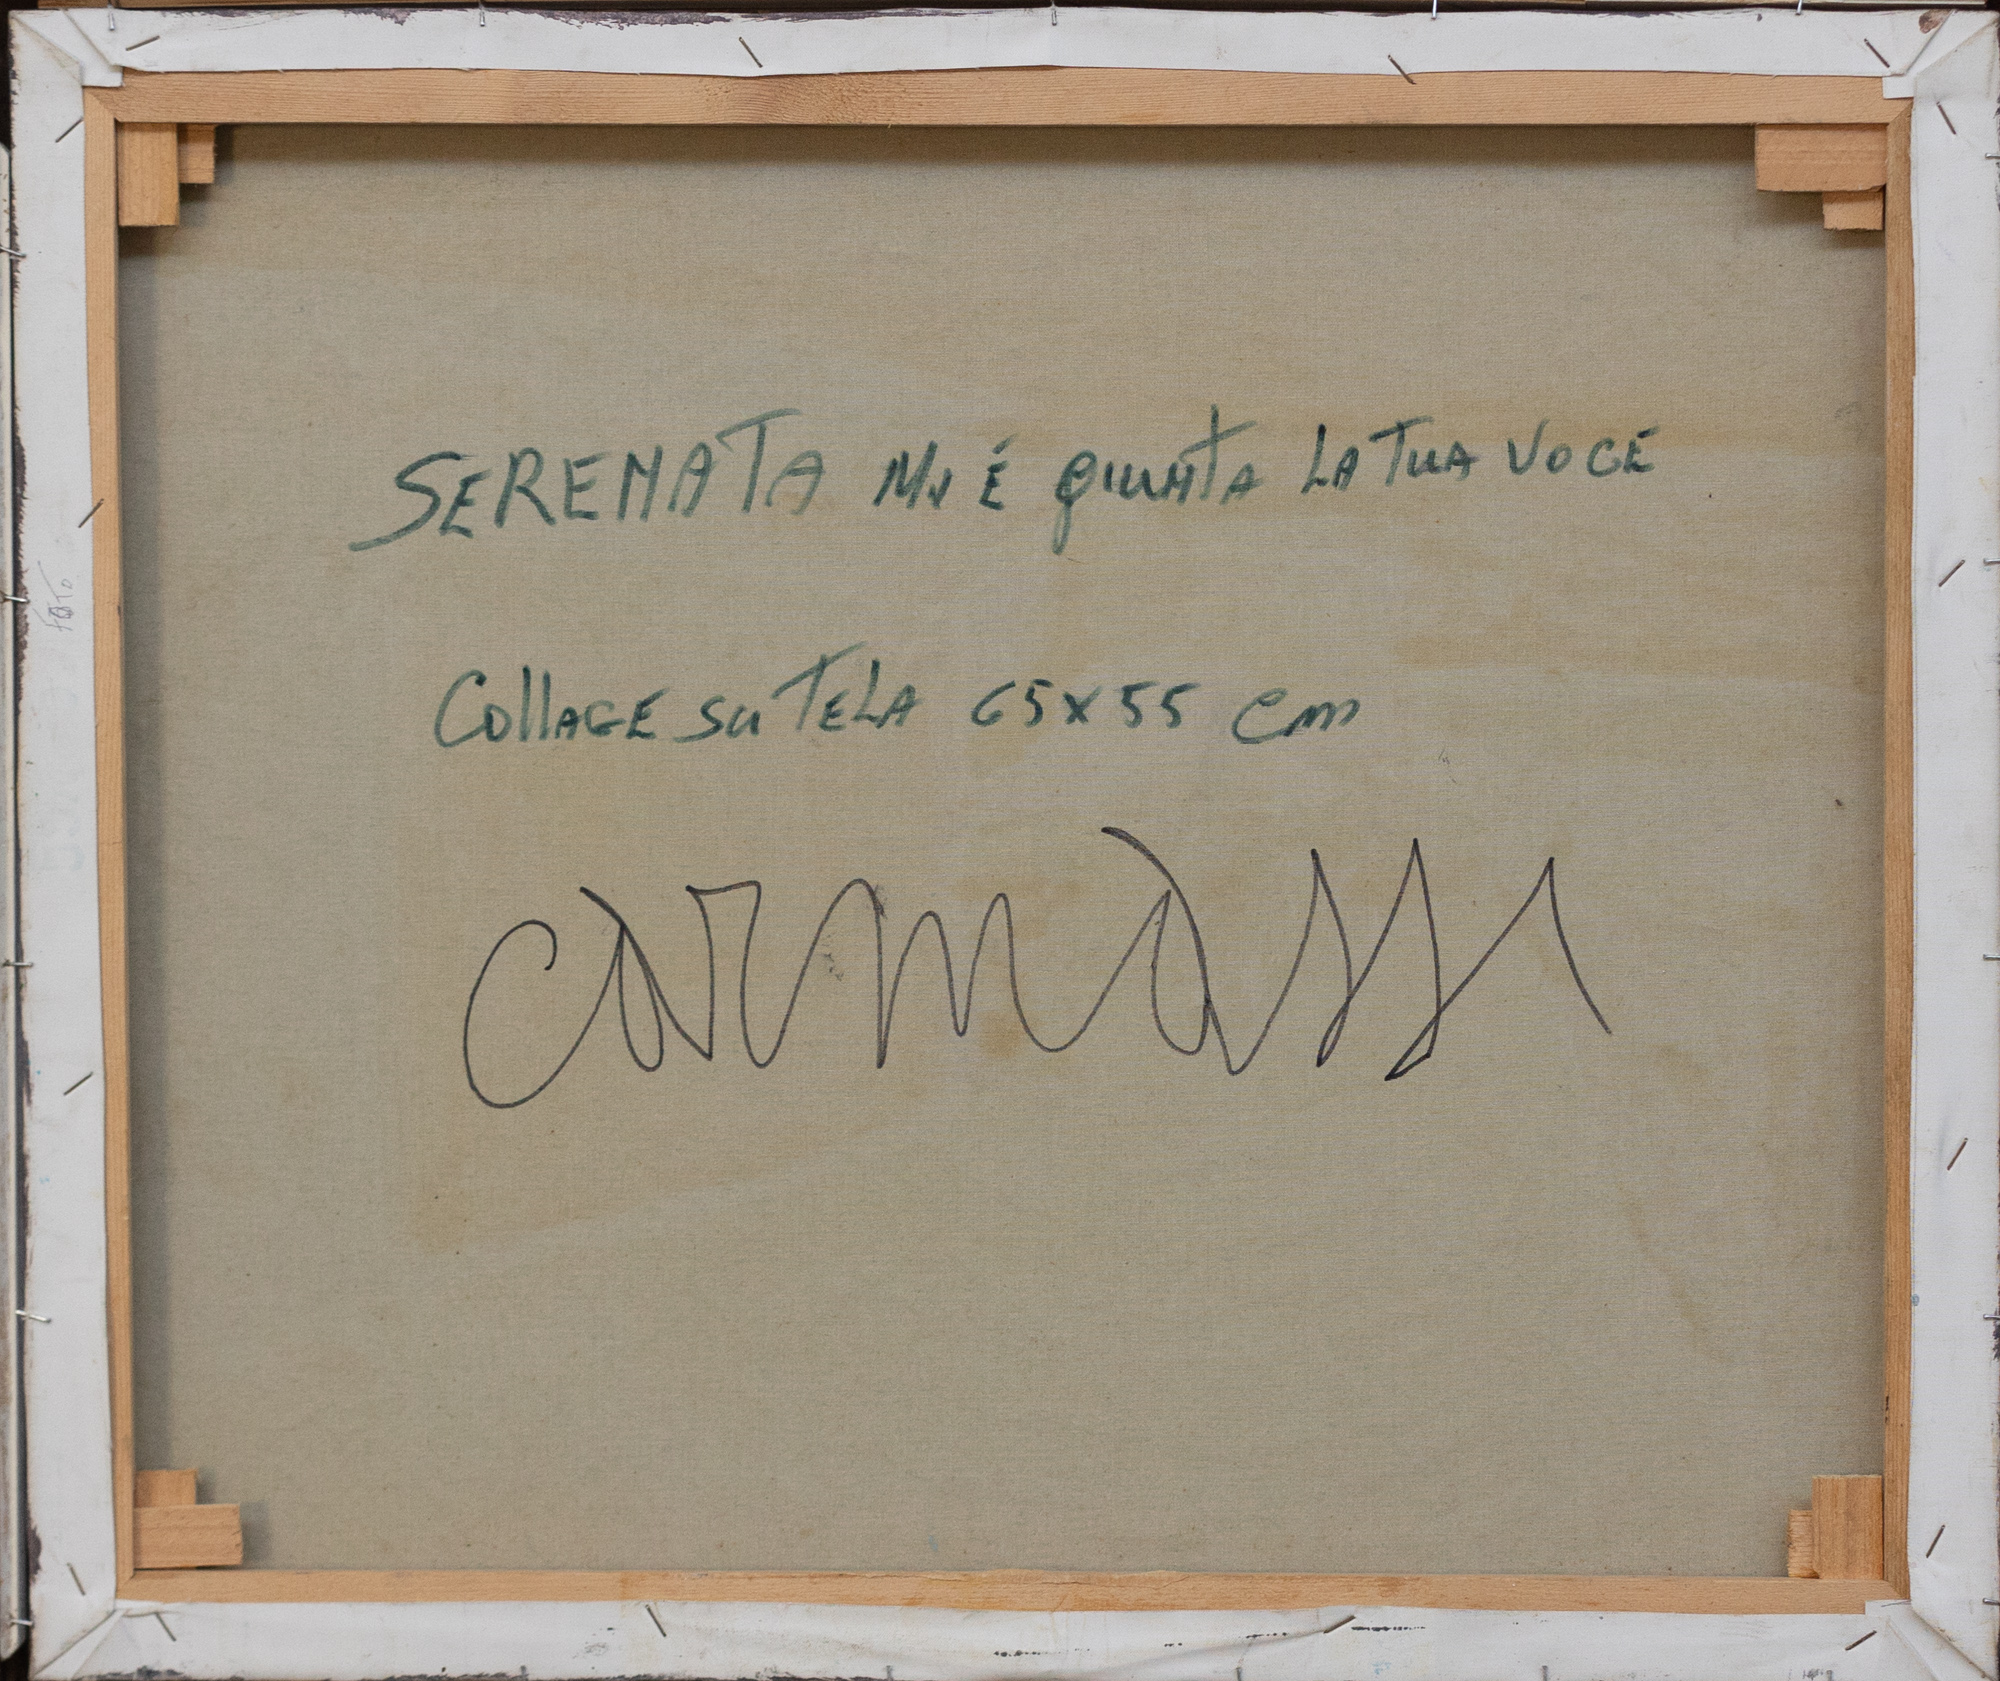 SERENATA MI É giunta LA TUA VOCE
Collage su TELA 65x55 cm
carmassi
FOTO